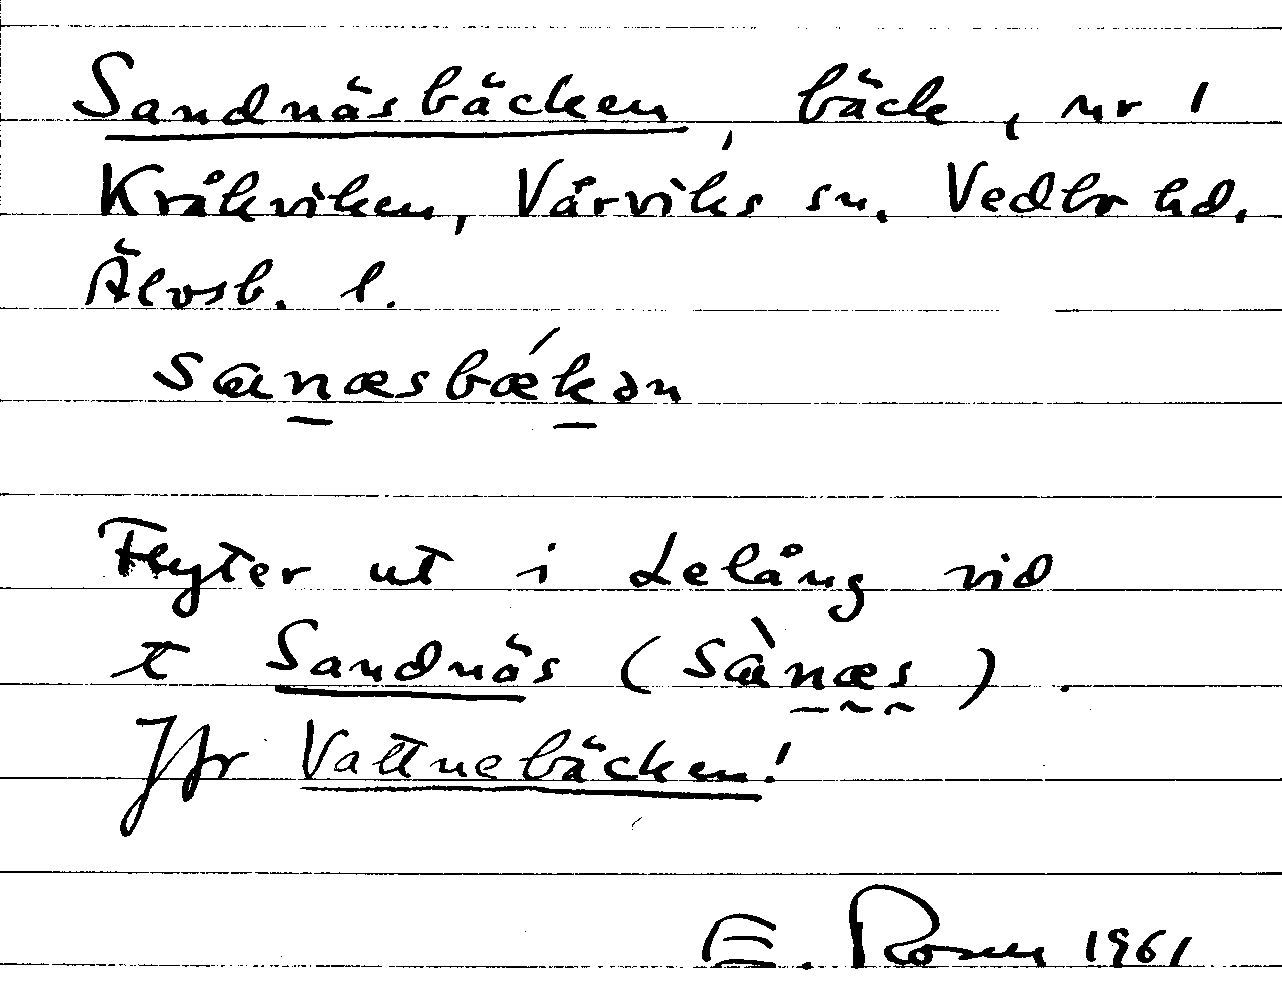 Sandnäsbäcken, bäck, nr 1
Kråkviken, Vårviks sn. Vedbo hd.
Älvsb. l.
sanæsbækən
Flyter ut i Lelång vid
t Sandnäs (sànæs).
Jfr Vattnebäcken!
E. Rosen 1961